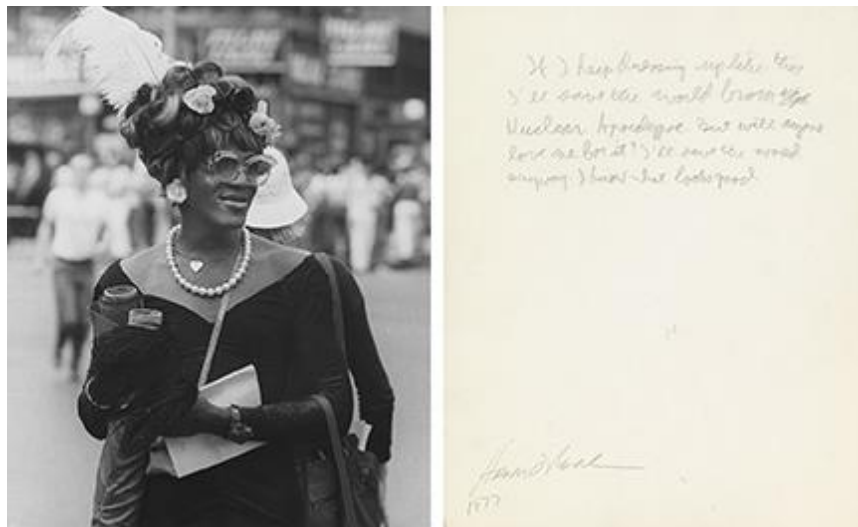 If I keep dressing up like this
I'll save the world from
Nuclear Apocalypse. But will anyone
love me for it? I'll save the world
anyway. I know what looks good
1977